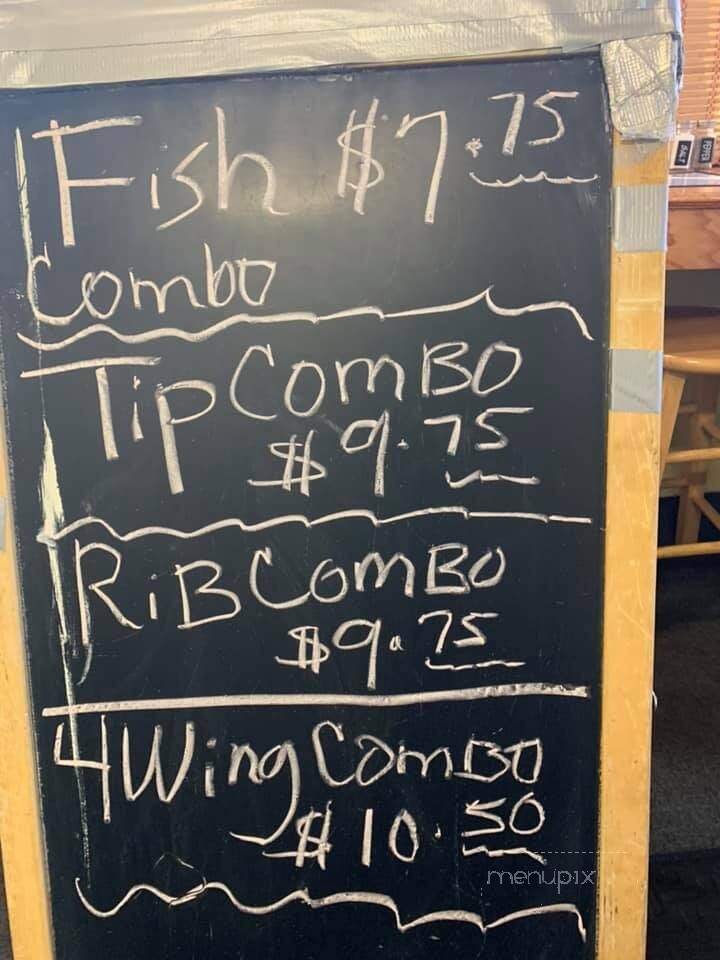 Fish $7.75
Combo
Tip ComBO
$9.75
RiB ComBO
$9.75
4 Wing ComBO
$10.50
menupix
SALT
PEPPER